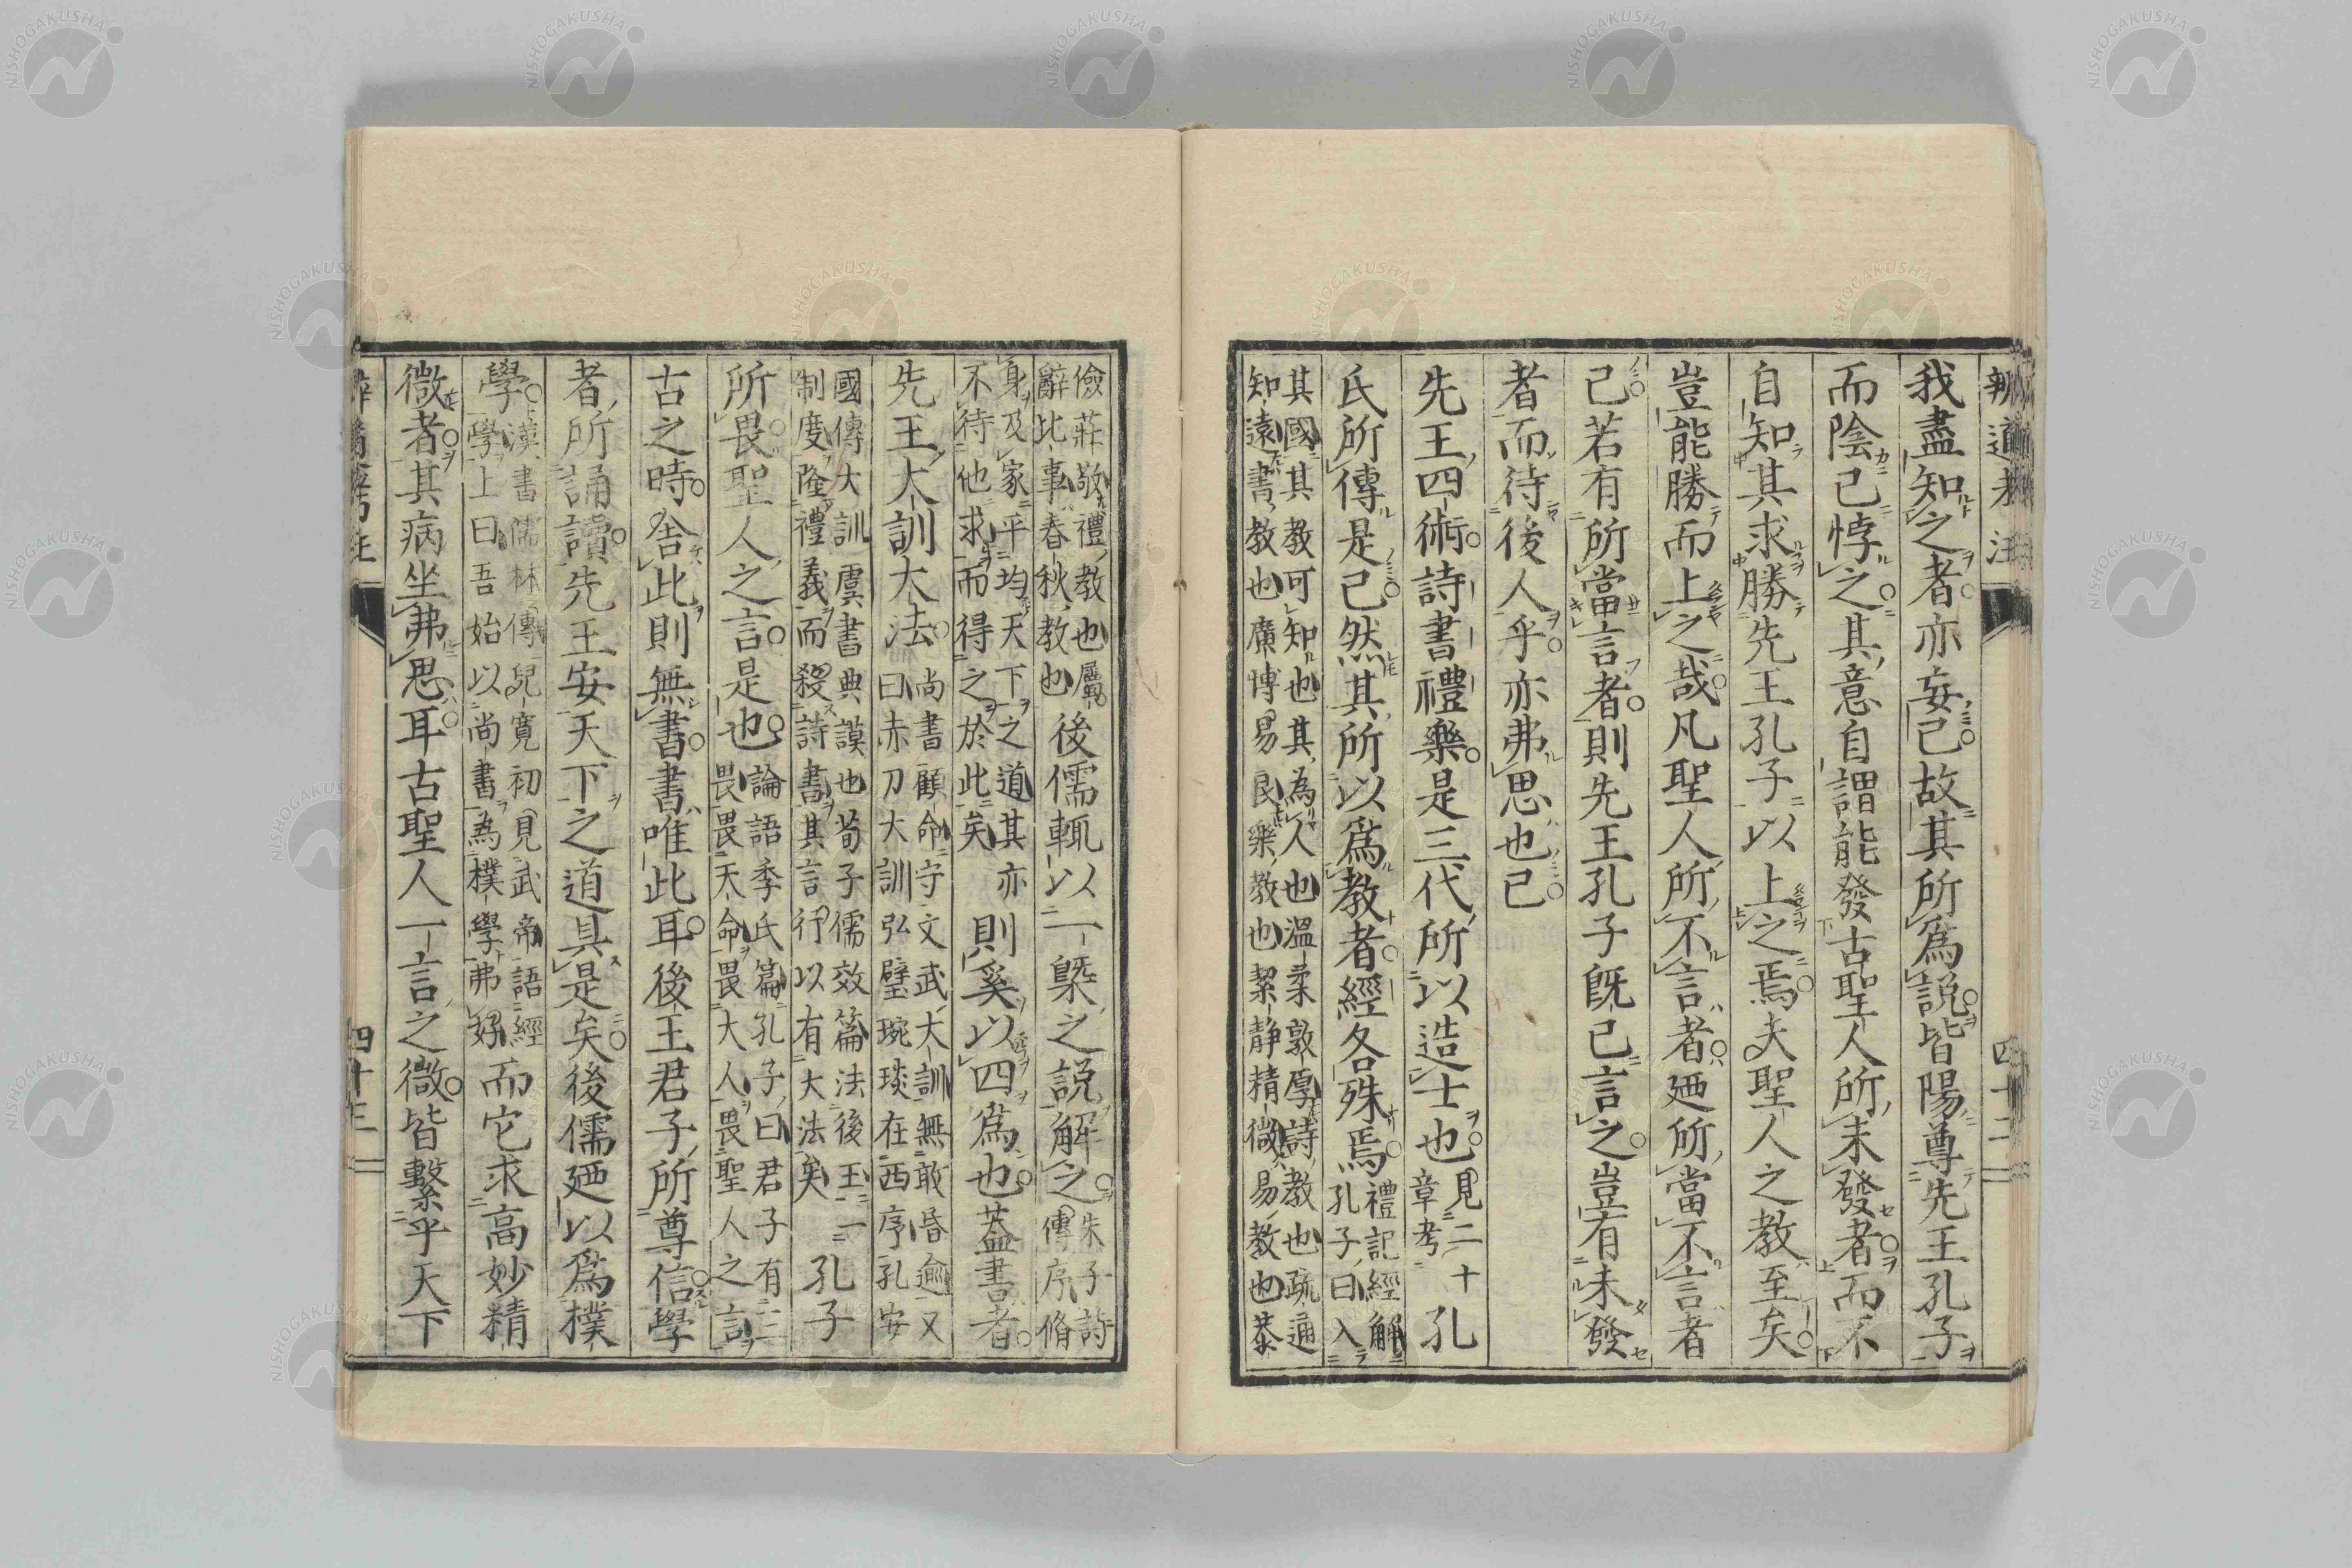 辨道考注
四十二
我盡知之者亦妄已故其所爲說皆陽尊先王孔子
而陰已悖之其意自謂能發古聖人所未發者而不
自知其求勝先王孔子以上之焉夫聖人之教至矣
豈能勝而上之哉凡聖人所不言者廼所當不言者
已若有所當言者則先王孔子旣已言之豈有未發
者而待後人乎亦弗思也已
先王四術詩書禮樂是三代所以造士也見二十章考孔
氏所傳是已然其所以爲教者經各殊焉禮記經解孔子曰入
其國其教可知也其為人也溫柔敦厚詩教也疏通
知遠書教也廣博易良樂教也絜靜精微易教也恭
儉莊敬禮教也屬
辭比事春秋教也後儒輒以一槩之說解之朱子詩傳序脩
身及家平均天下之道其亦
不待他求而得之於此矣則奚以四爲也蓋書者
先王大訓大法尚書顧命守文武大訓無敢昏逾又
曰赤刀大訓弘璧琬琰在西序孔安
國傳大訓虞書典謨也荀子儒效篇法後王一
制度隆禮義而殺詩書其言行以有大法矣孔子
所畏聖人之言是也論語季氏篇孔子曰君子有三
畏畏天命畏大人畏聖人之言
古之時舍此則無書書唯此耳後王君子所尊信學
者所誦讀先王安天下之道具是矣後儒廼以爲樸
學漢書儒林傳兒寬初見武帝語經
學上曰吾始以尚書為樸學弗好而它求高妙精
微者其病坐弗思耳古聖人一言之微皆繫乎天下
四十三